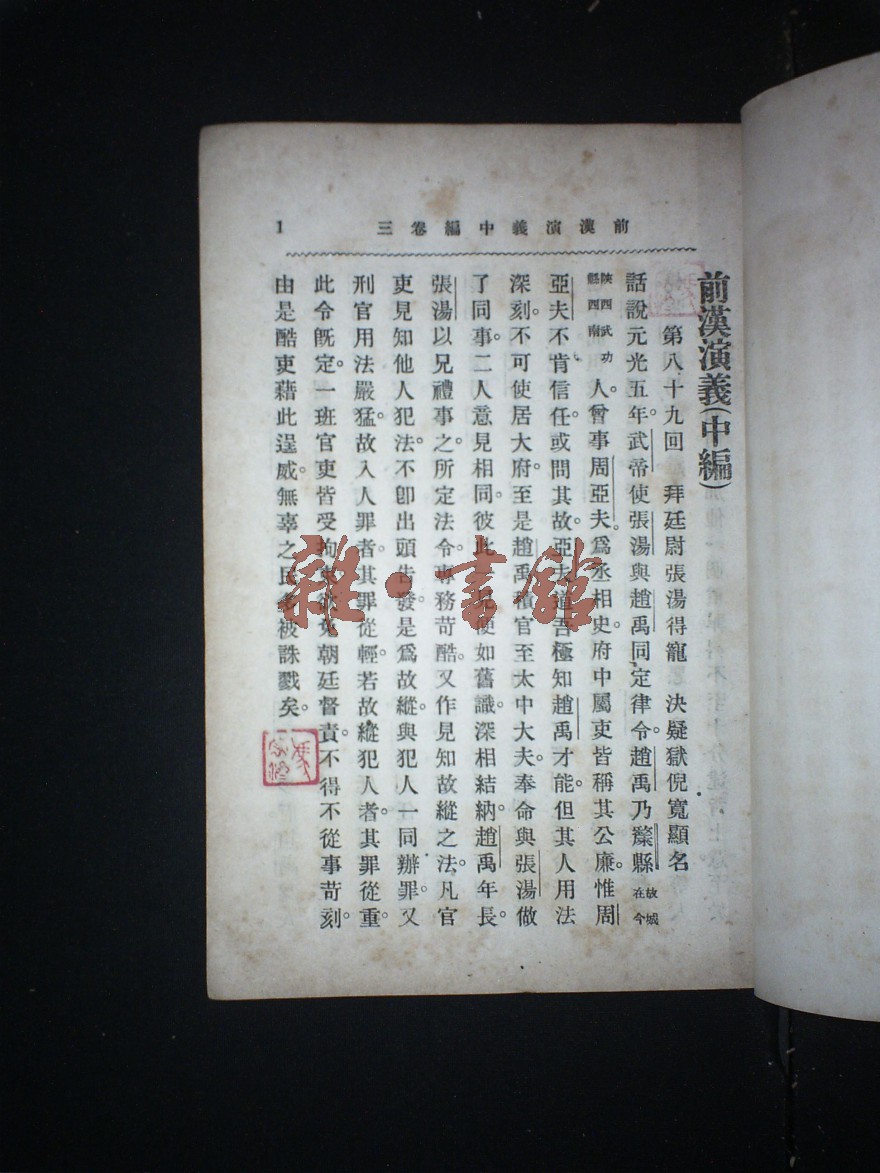 前漢演義中編卷三
1
前漢演義(中編)
第八十九回 拜廷尉張湯得寵 決疑獄倪寬顯名
話說元光五年。武帝使張湯與趙禹同定律令。趙禹乃斄縣故城在今
陝西武功縣西南人。曾事周亞夫。爲丞相史。府中屬吏皆稱其公廉。惟周
亞夫不肯信任。或問其故。亞夫道吾極知趙禹才能。但其人用法
深刻。不可使居大府。至是趙禹積官至太中大夫。奉命與張湯做
了同事。二人意見相同。彼此一見便如舊識。深相結納。趙禹年長。
張湯以兄禮事之。所定法令。專務苛酷。又作見知故縱之法。凡官
吏見知他人犯法。不卽出頭告發。是爲故縱。與犯人一同辦罪。又
刑官用法嚴猛。故入人罪者。其罪從輕。若故縱犯人者。其罪從重。
此令旣定。一班官吏皆受拘 朝廷督責。不得不從事苛刻。
由是酷吏藉此逞威。無辜之民多被誅戮矣。
雜·書館